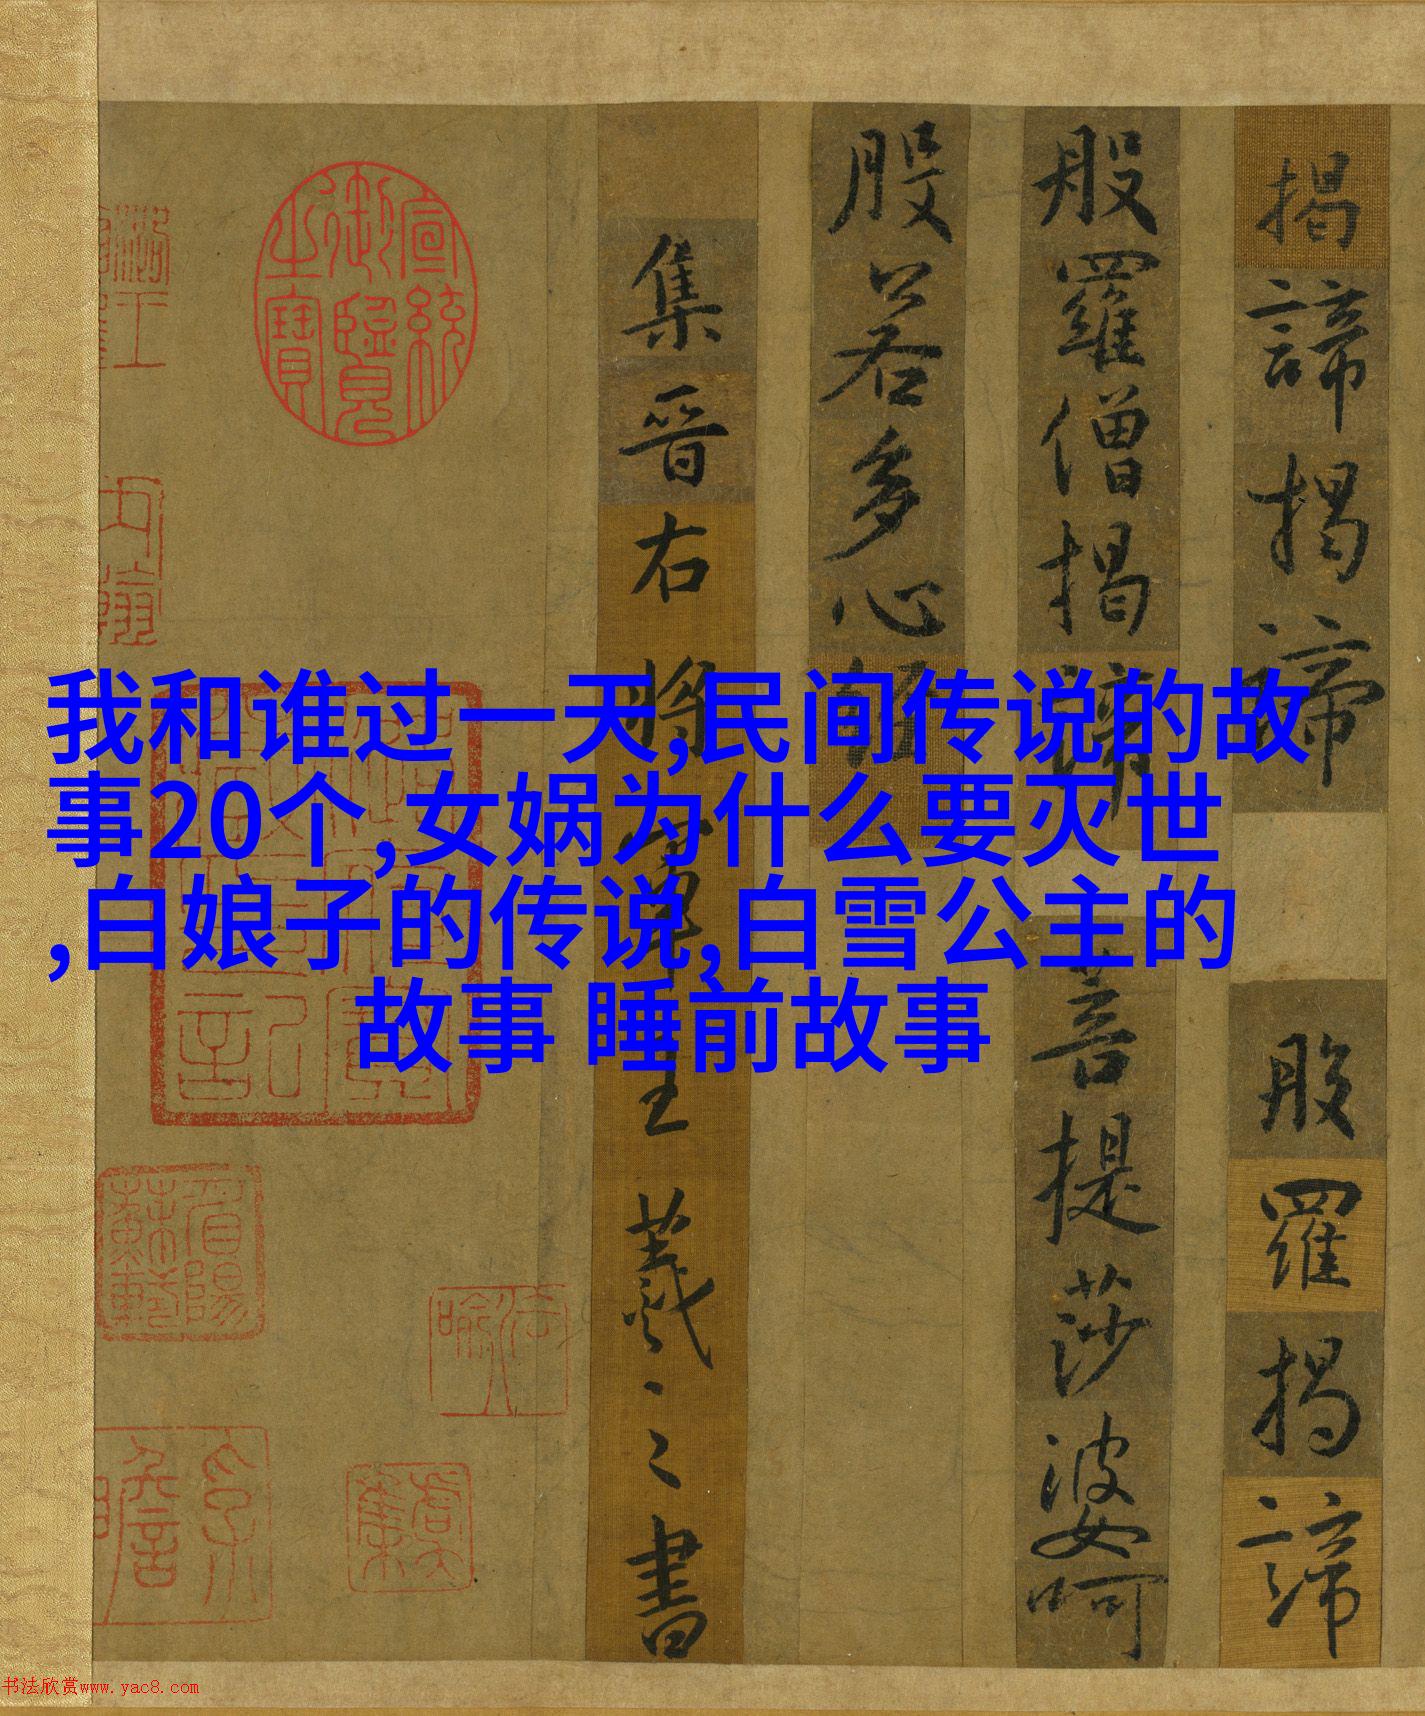 我和谁过一天,民间传说的故
事20个,女娲为什么要灭世
,白娘子的传说,白雪公主的
故事 睡前故事
揭諦揭諦 般羅揭諦
般羅僧揭諦 菩提莎婆呵
般若多心經
集晉右將軍王羲之書
宣統御覽之寶
书法欣赏www.yac8.com